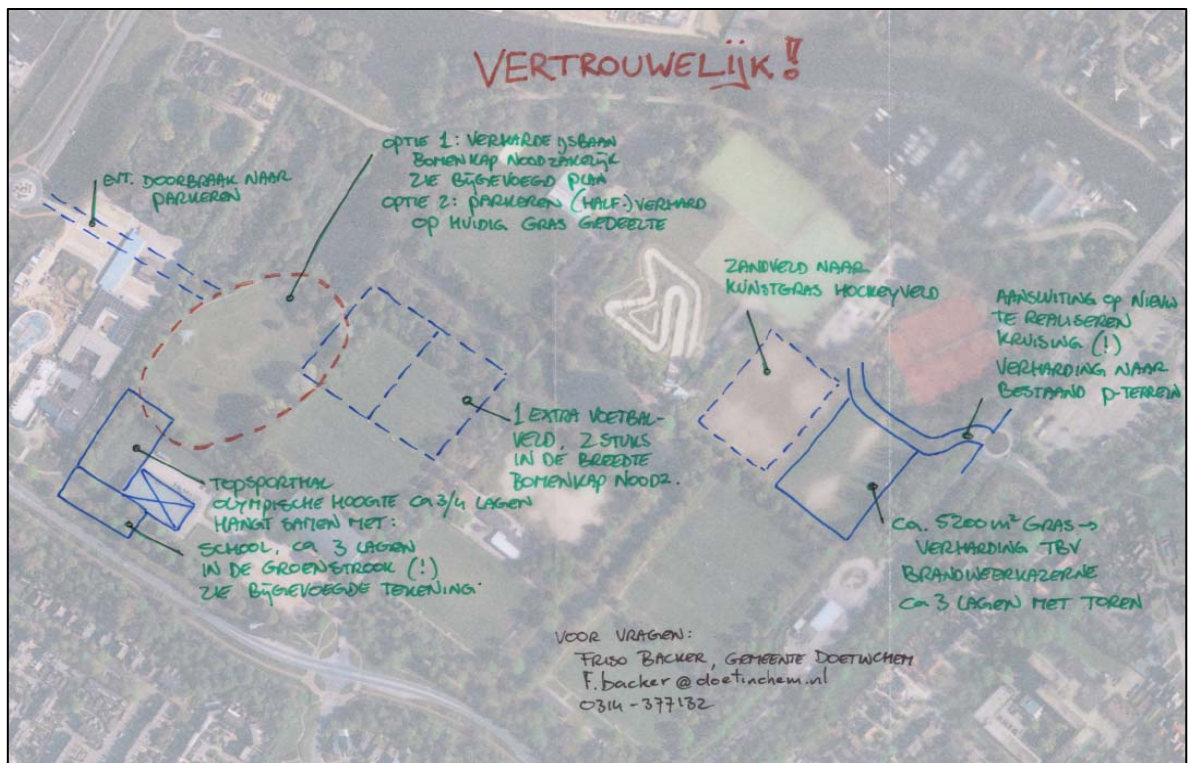 VERTROUWELIJK!
OPTIE 1: VERHARDE IJSBAAN
BOMENKAP NOODZAKELIJK
ZIE BIJGEVOEGD PLAN
OPTIE 2: PARKEREN (HALF-)VERHARD
OP HUIDIG GRAS GEDEELTE
EVT. DOORBRAAK NAAR
PARKEREN
ZANDVELD NAAR
KUNSTGRAS HOCKEYVELD
AANSLUITING OP NIEUW
TE REALISEREN
KRUISING (!)
VERHARDING NAAR
BESTAAND P-TERREIN
1 EXTRA VOETBAL-
VELD, 2 STUKS
IN DE BREEDTE
BOMENKAP NOODZ.
TOPSPORTHAL
OLYMPISCHE HOOGTE CA 3/4 LAGEN
HANGT SAMEN MET:
SCHOOL, CA 3 LAGEN
IN DE GROENSTROOK (!)
ZIE BIJGEVOEGDE TEKENING.
CA. 5200 m² GRAS →
VERHARDING TBV
BRANDWEERKAZERNE
CA 3 LAGEN MET TOREN
VOOR VRAGEN:
FRISO BACKER, GEMEENTE DOETINCHEM
f.backer@doetinchem.nl
0314-377132